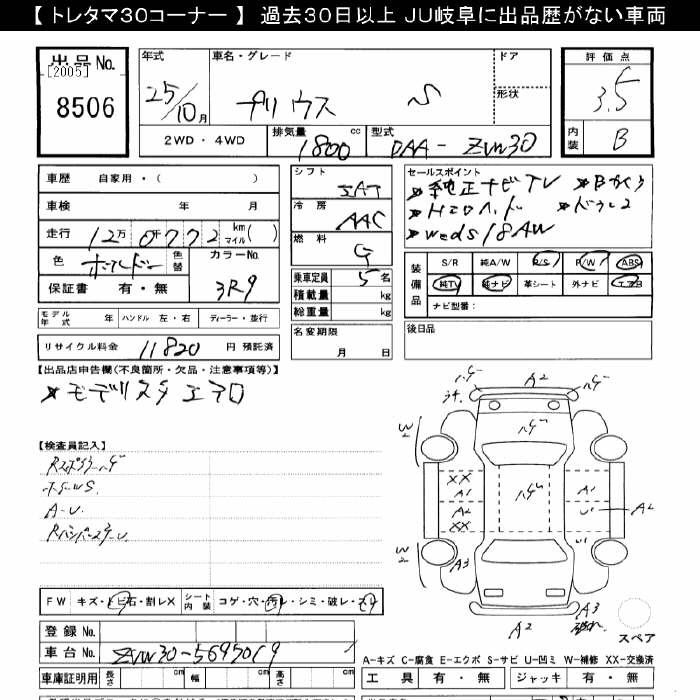 【 トレタマ30コーナー 】 過去30日以上 JU岐阜に出品歴がない車両
出品No.
[2005]
8506
年式
25/10月
車名・グレード
プリウス S
ドア
形状
2WD ・ 4WD
排気量 1800 cc
型式 DAA - ZVW30
評価点
3.5
内装 B
車歴 自家用・( )
車検 年 月
走行 12万0千772 km マイル( )
色
色替
カラーNo.
3R9
保証書 有・無
モデル年式 年
ハンドル 左・右
ディーラー・並行
リサイクル料金 11820 円 預託済
シフト
冷房
AAC
燃料
G
乗車定員 5名
積載量 kg
総重量 kg
名変期限
月 日
セールスポイント
*純正ナビTV *Bカメラ
*HID *ドラレコ
*weds 18AW
装備品
S/R 純A/W P/S P/W ABS
純TV 純ナビ 革シート 外ナビ エアB
ナビ型番:
後日品
【出品店申告欄(不良箇所・欠品・注意事項等)】
*モデリスタエアロ
【検査員記入】
A-U.
FW キズ・トビ石・割レX
シート内装 コゲ・穴・汚レ・シミ・破レ・スレ
登録No.
車台No. ZVW30-5695019
車庫証明用 長さ cm 幅 cm 高さ cm
ハゲ A2 ハゲ
W2
ハゲ
XX
A1
A2
XX
ハゲ
A1
U1
A2
U1
W2
A3
A2
A3
スペア
A-キズ C-腐食 E-エクボ S-サビ U-凹ミ W-補修 XX-交換済
工具 有・無 ジャッキ 有・無